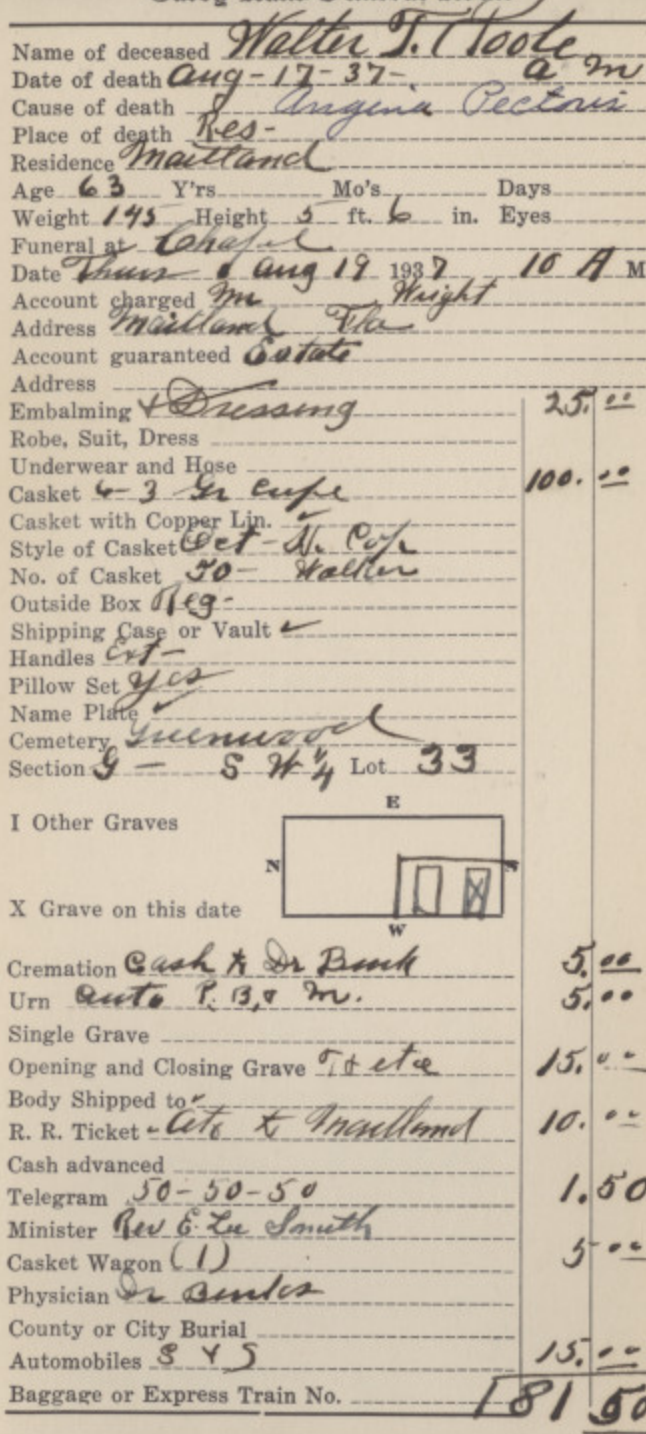 Name of deceased Walter T. O'Toole
Date of death Aug-17-37- a m
Cause of death Angina Pectoris
Place of death Res-
Residence Maitland
Age 63 Y'rs Mo's Days
Weight 145 Height 5 ft. 6 in. Eyes
Funeral at Chapel
Date Thurs Aug 19 1937 10 A M
Account charged Mr Wright
Address Maitland Fla
Account guaranteed Estate
Address
Embalming & Dressing 25.00
Robe, Suit, Dress
Underwear and Hose
Casket 6-3 Gr Crepe 100.00
Casket with Copper Lin.
Style of Casket Oct - N. Cop
No. of Casket 50- Walker
Outside Box Reg-
Shipping Case or Vault
Handles Ext-
Pillow Set yes
Name Plate
Cemetery Greenwood
Section G - S W 1/4 Lot 33
E
I Other Graves
N S
X Grave on this date
W
Cremation Cash to Dr Bunk 5.00
Urn Auto P. B. & M. 5.00
Single Grave
Opening and Closing Grave T & etc 15.00
Body Shipped to
R. R. Ticket to Maitland 10.00
Cash advanced
Telegram 50-50-50 1.50
Minister Rev E. Lee Smith
Casket Wagon (1) 5 00
Physician Dr
County or City Burial
Automobiles S & S 15.00
Baggage or Express Train No. 181 50